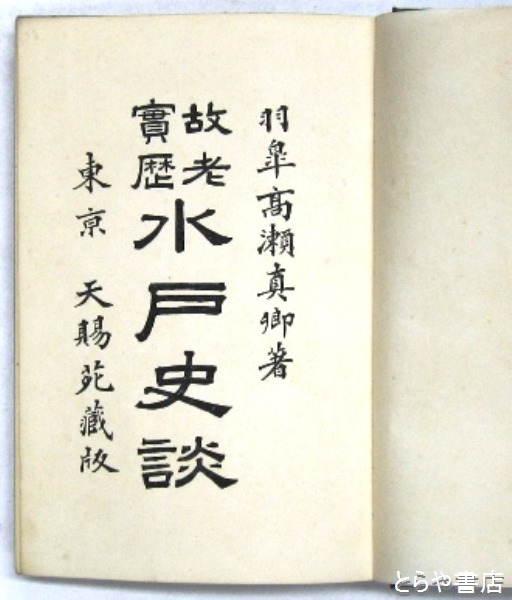 羽皐髙瀬真卿著
故老
實歷
水戸史談
東京 天賜苑藏版
とらや書店